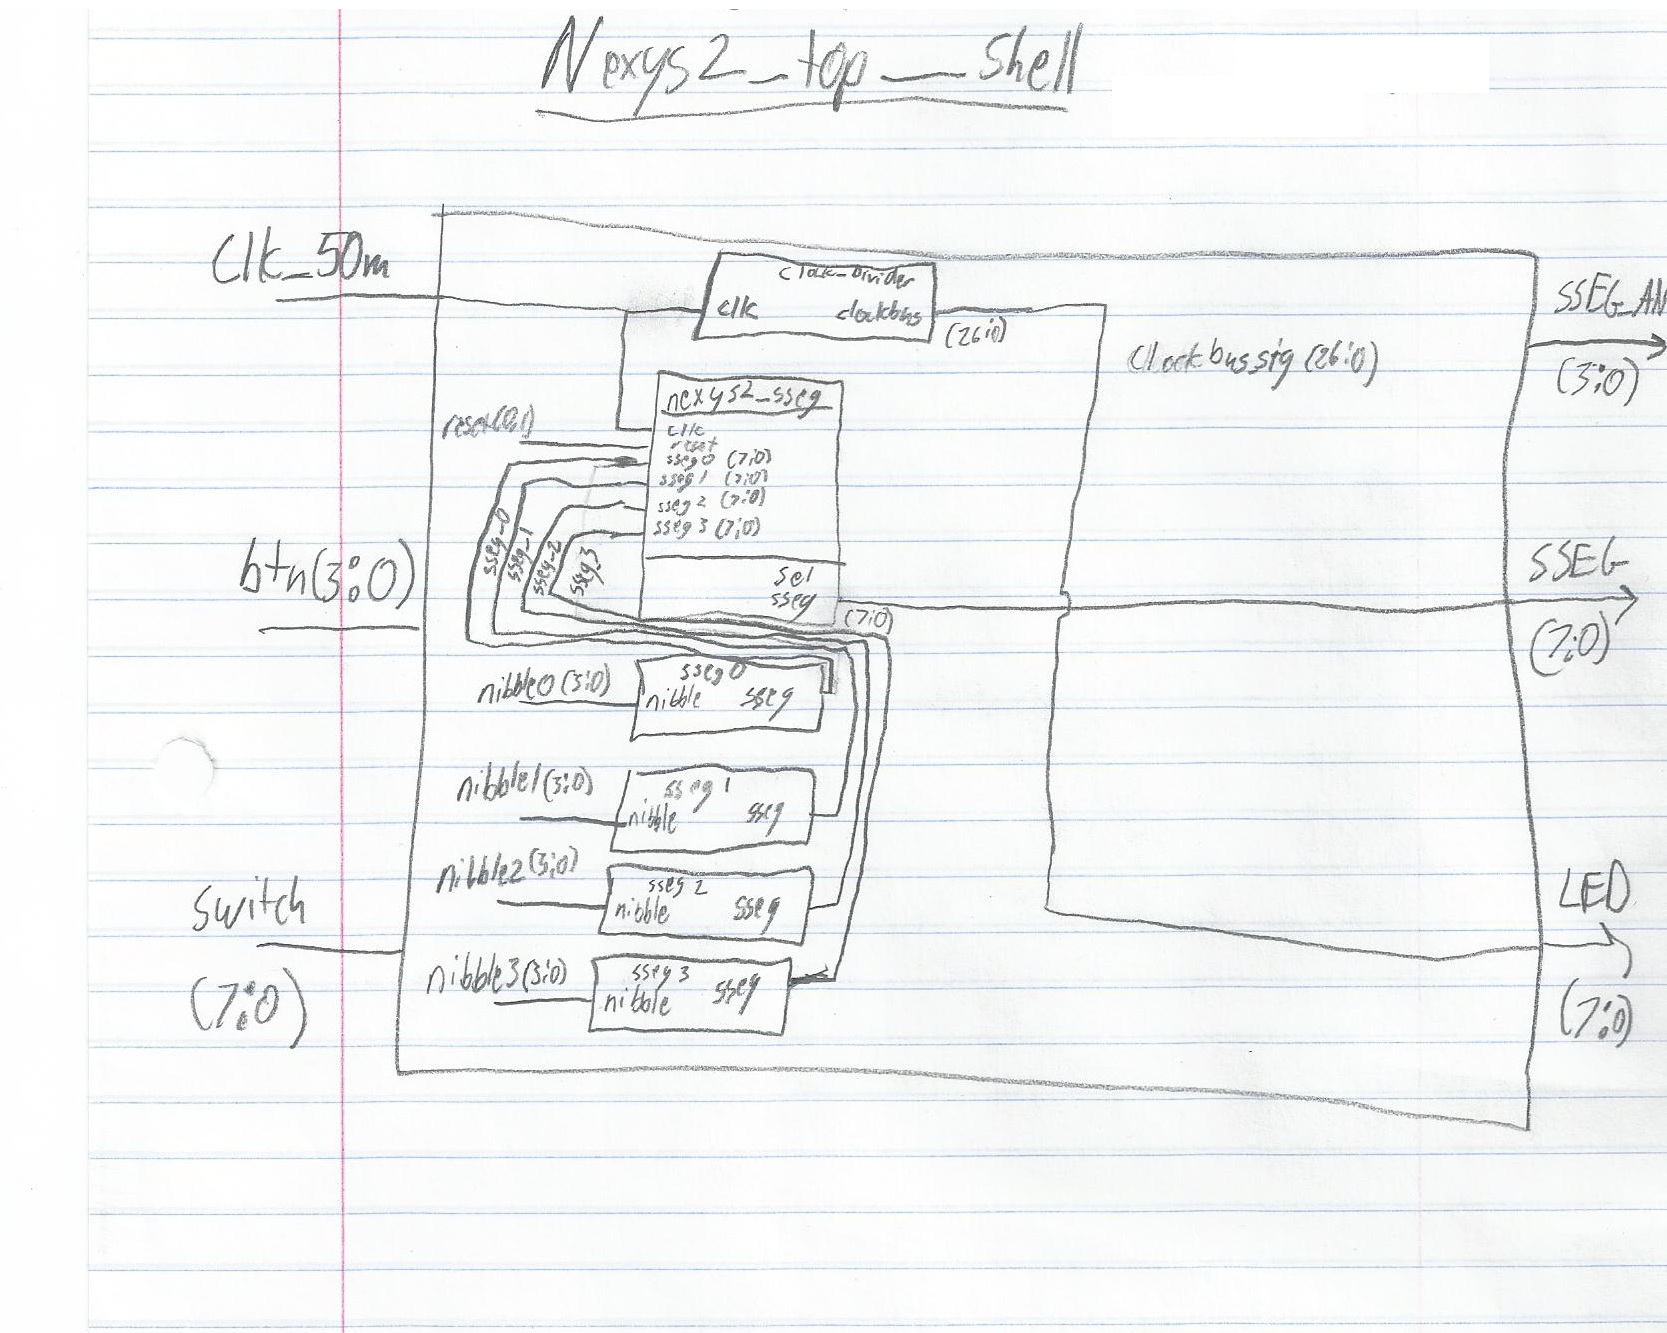 Nexys2_top_Shell
Clk_50m
Clock_Divider
clk clockbus
(26:0)
Clockbussig (26:0)
SSEG_AN
(3:0)
nexys2_sseg
clk
reset
sseg0 (7:0)
sseg1 (7:0)
sseg2 (7:0)
sseg3 (7:0)
sel
sseg
(7:0)
sseg_0
sseg_1
sseg_2
sseg_3
btn(3:0)
SSEG
(7:0)
nibble0 (3:0)
sseg0
nibble sseg
nibble1(3:0)
sseg1
nibble sseg
nibble2(3:0)
sseg2
nibble sseg
nibble3(3:0)
sseg3
nibble sseg
switch
(7:0)
LED
(7:0)